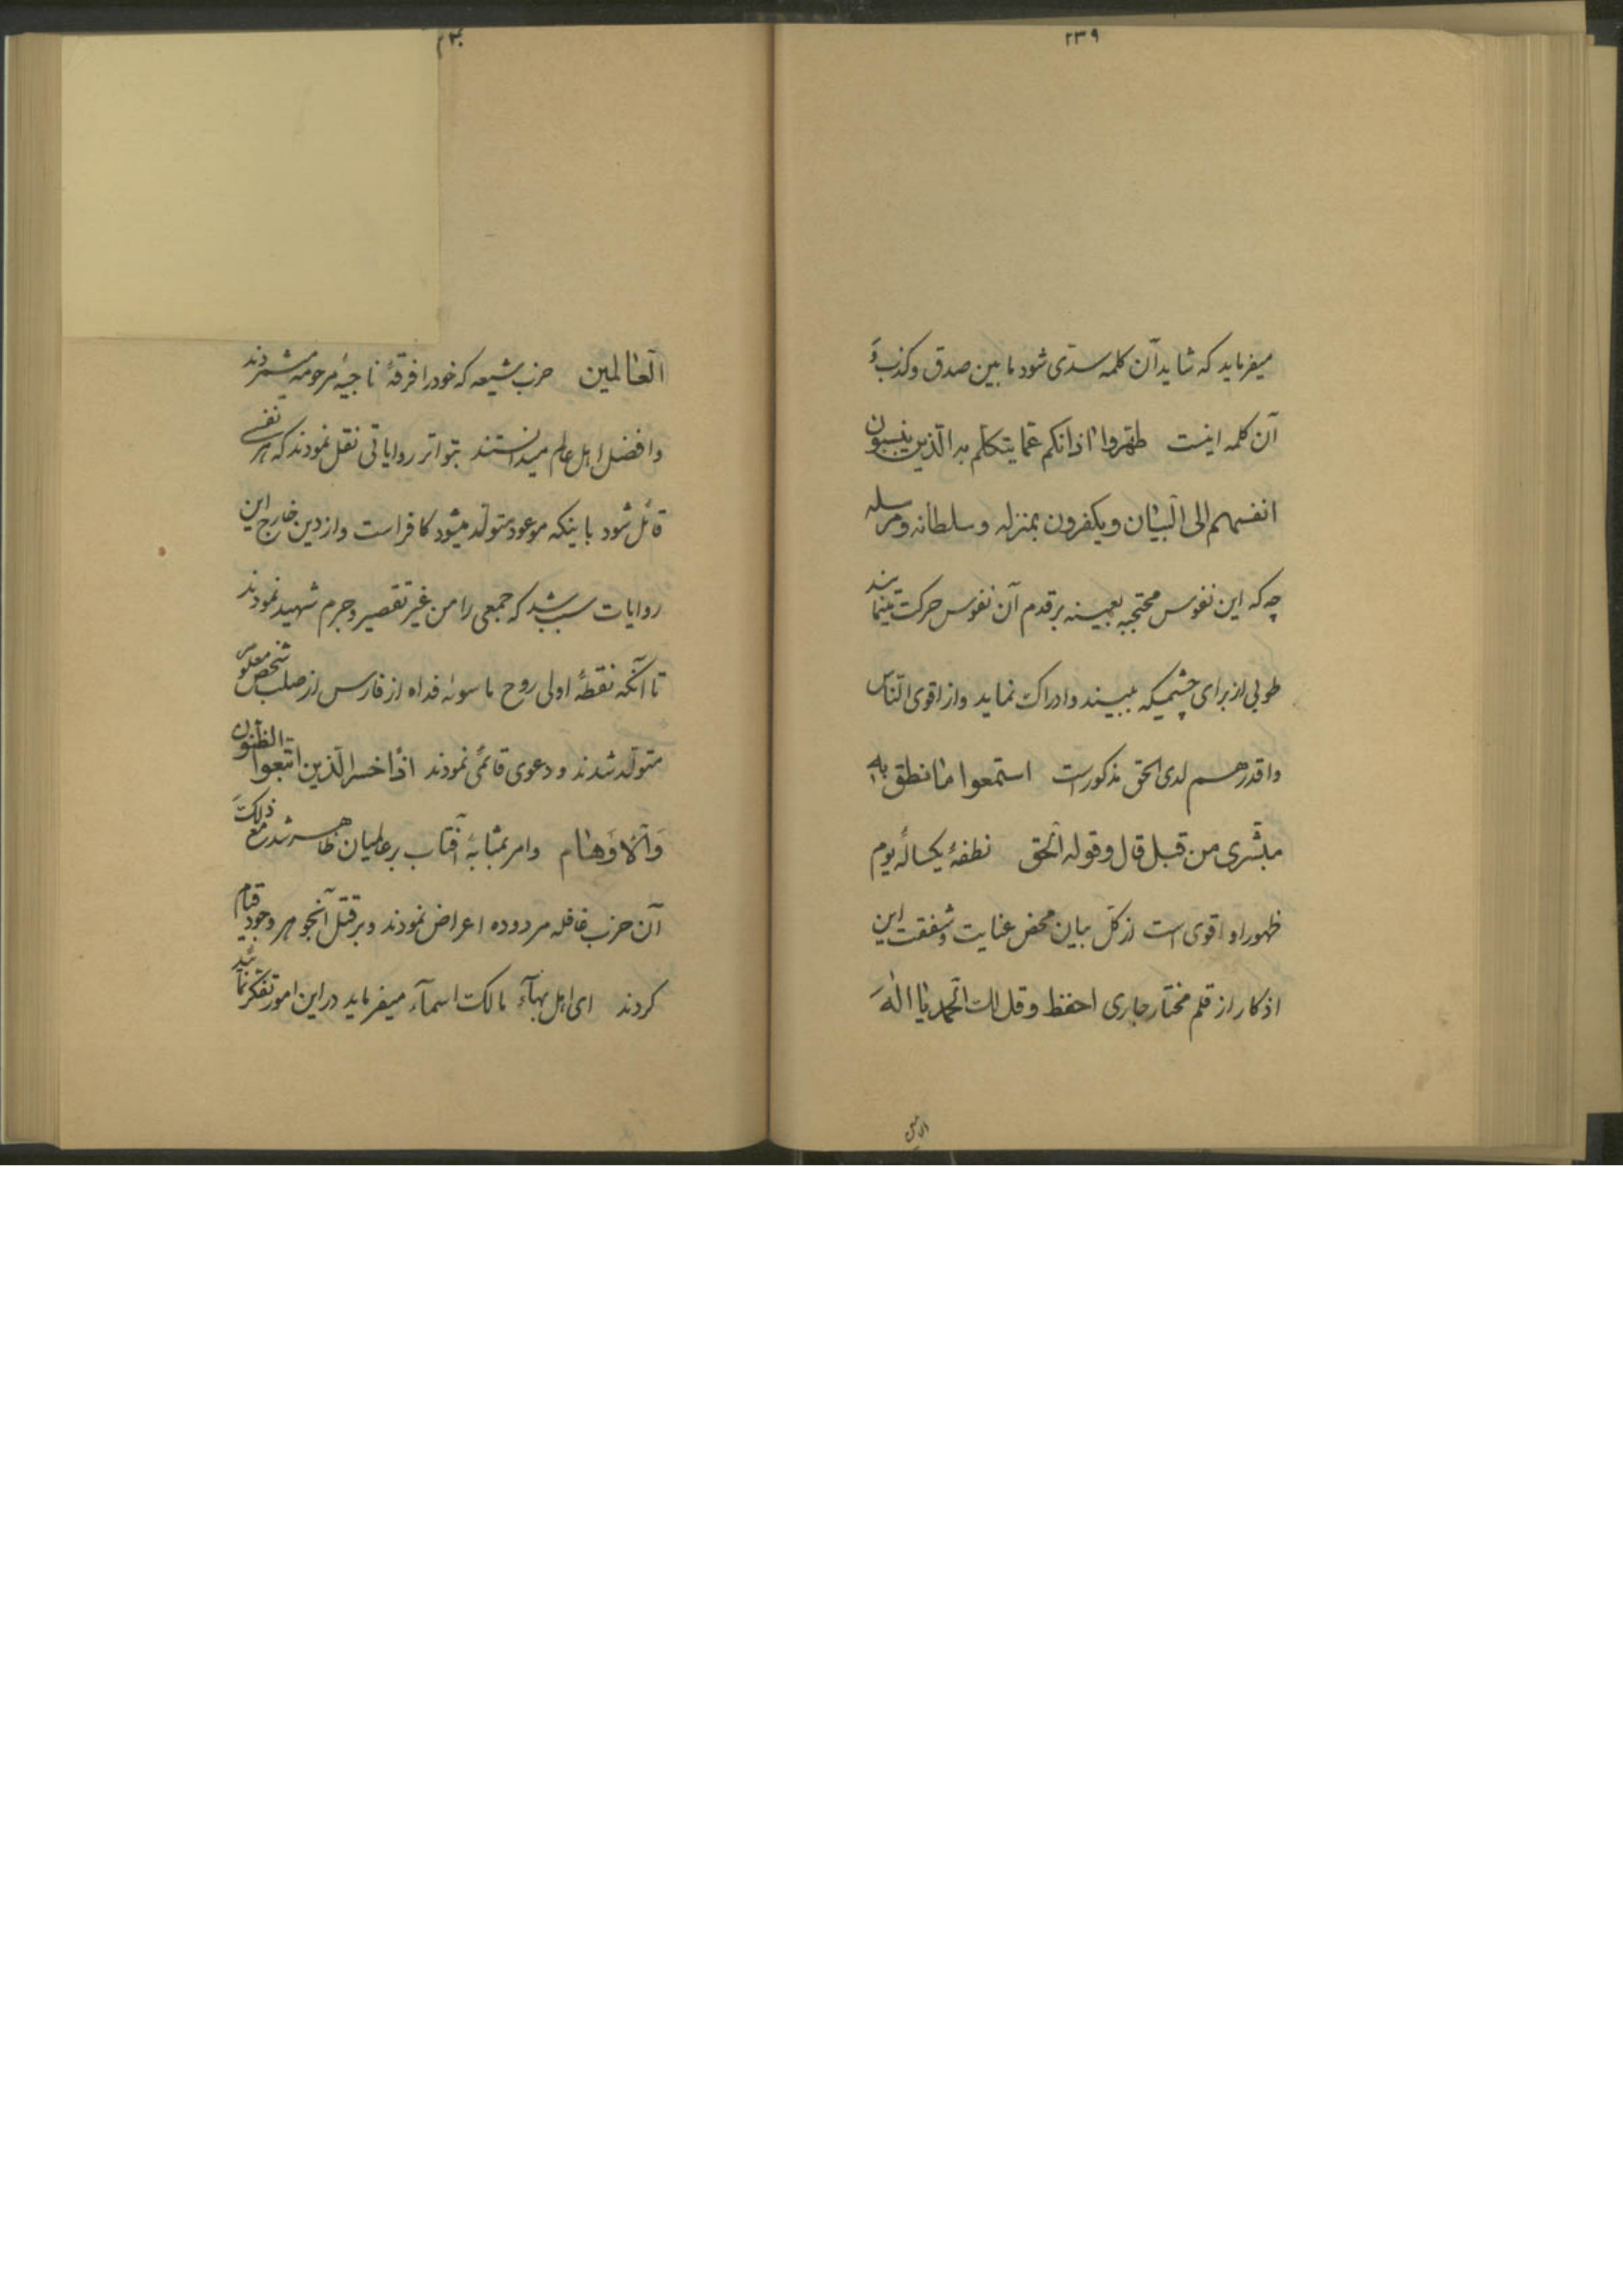 ۲۳۹
میفرماید که شاید آن کلمه سدّی شود ما بین صدق و کذب وَ
آن کلمه اینست طهّروا اٰذانکم عمّا یتکلّم به الّذین ینسبون
انفسهم الی البیٰان و یکفرون بمنزله و سلطانه و مرسله
چه که این نفوس محتجبه بعینه بر قدم آن نفوس حرکت مینمایند
طوبی از برای چشمیکه ببیند و ادراک نماید و از اقوی النّاس
و اقدرهم لدی الحق مذکور است استمعوا مٰا نطق به
مبشّری من قبل قال و قوله الحق نطفهٔ یکسالهٔ یوم
ظهور او اقوی است از کلّ بیان محض عنایت و شفقت این
اذکار از قلم مختار جاری احفظ و قل لک الحمد یٰا الٰهَ
العٰالمین
۲۴۰
العٰالمین حزب شیعه که خود را فرقهٔ ناجیهٔ مرحومه میشمردند
و افضل اهل عالم میدانستند بتواتر روایاتی نقل نمودند که هر نفسی
قائل شود باینکه موعود متولّد میشود کافر است و از دین خارج این
روایات سبب شد که جمعی را من غیر تقصیر و جرم شهید نمودند
تا آنکه نقطهٔ اولی روح ما سوٰیه فداه از فارس از صلب شخص معلوم
متولّد شدند و دعوی قائمی نمودند اذاً خسر الّذین اتّبعوا الظّنون
وَ الْأَوْهٰام و امر بمثابهٔ آفتاب بر عالمیان ظاهر شد مع ذلکَ
آن حزب غافله مردوده اعراض نمودند و بر قتل آنجوهر وجود قیام
کردند ای اهل بهآء مالک اسمآء میفرماید در این امور تفکّر نمائید